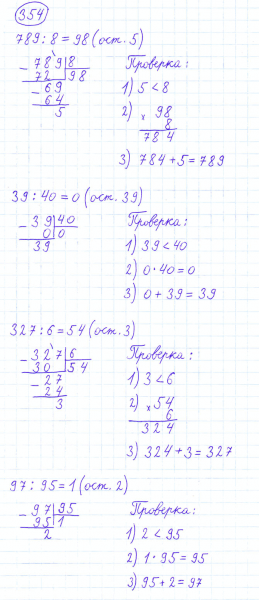 354
789 : 8 = 98 (ост. 5)
- 789 | 8
72 | 98
- 69
64
5
Проверка:
1) 5 < 8
2) × 98
8
784
3) 784 + 5 = 789
39 : 40 = 0 (ост. 39)
- 39 | 40
0 | 0
39
Проверка:
1) 39 < 40
2) 0 · 40 = 0
3) 0 + 39 = 39
327 : 6 = 54 (ост. 3)
- 327 | 6
30 | 54
- 27
24
3
Проверка:
1) 3 < 6
2) × 54
6
324
3) 324 + 3 = 327
97 : 95 = 1 (ост. 2)
- 97 | 95
95 | 1
2
Проверка:
1) 2 < 95
2) 1 · 95 = 95
3) 95 + 2 = 97